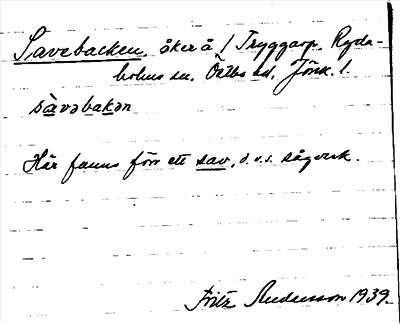 Savebacken, åker å 1 Tryggarp. Ryda-
holms sn. Östbo hd. Jönk. l.
sàvəbakən
Här fanns förr ett sav, d.v.s. sågverk.
Fritz Andersson 1939.